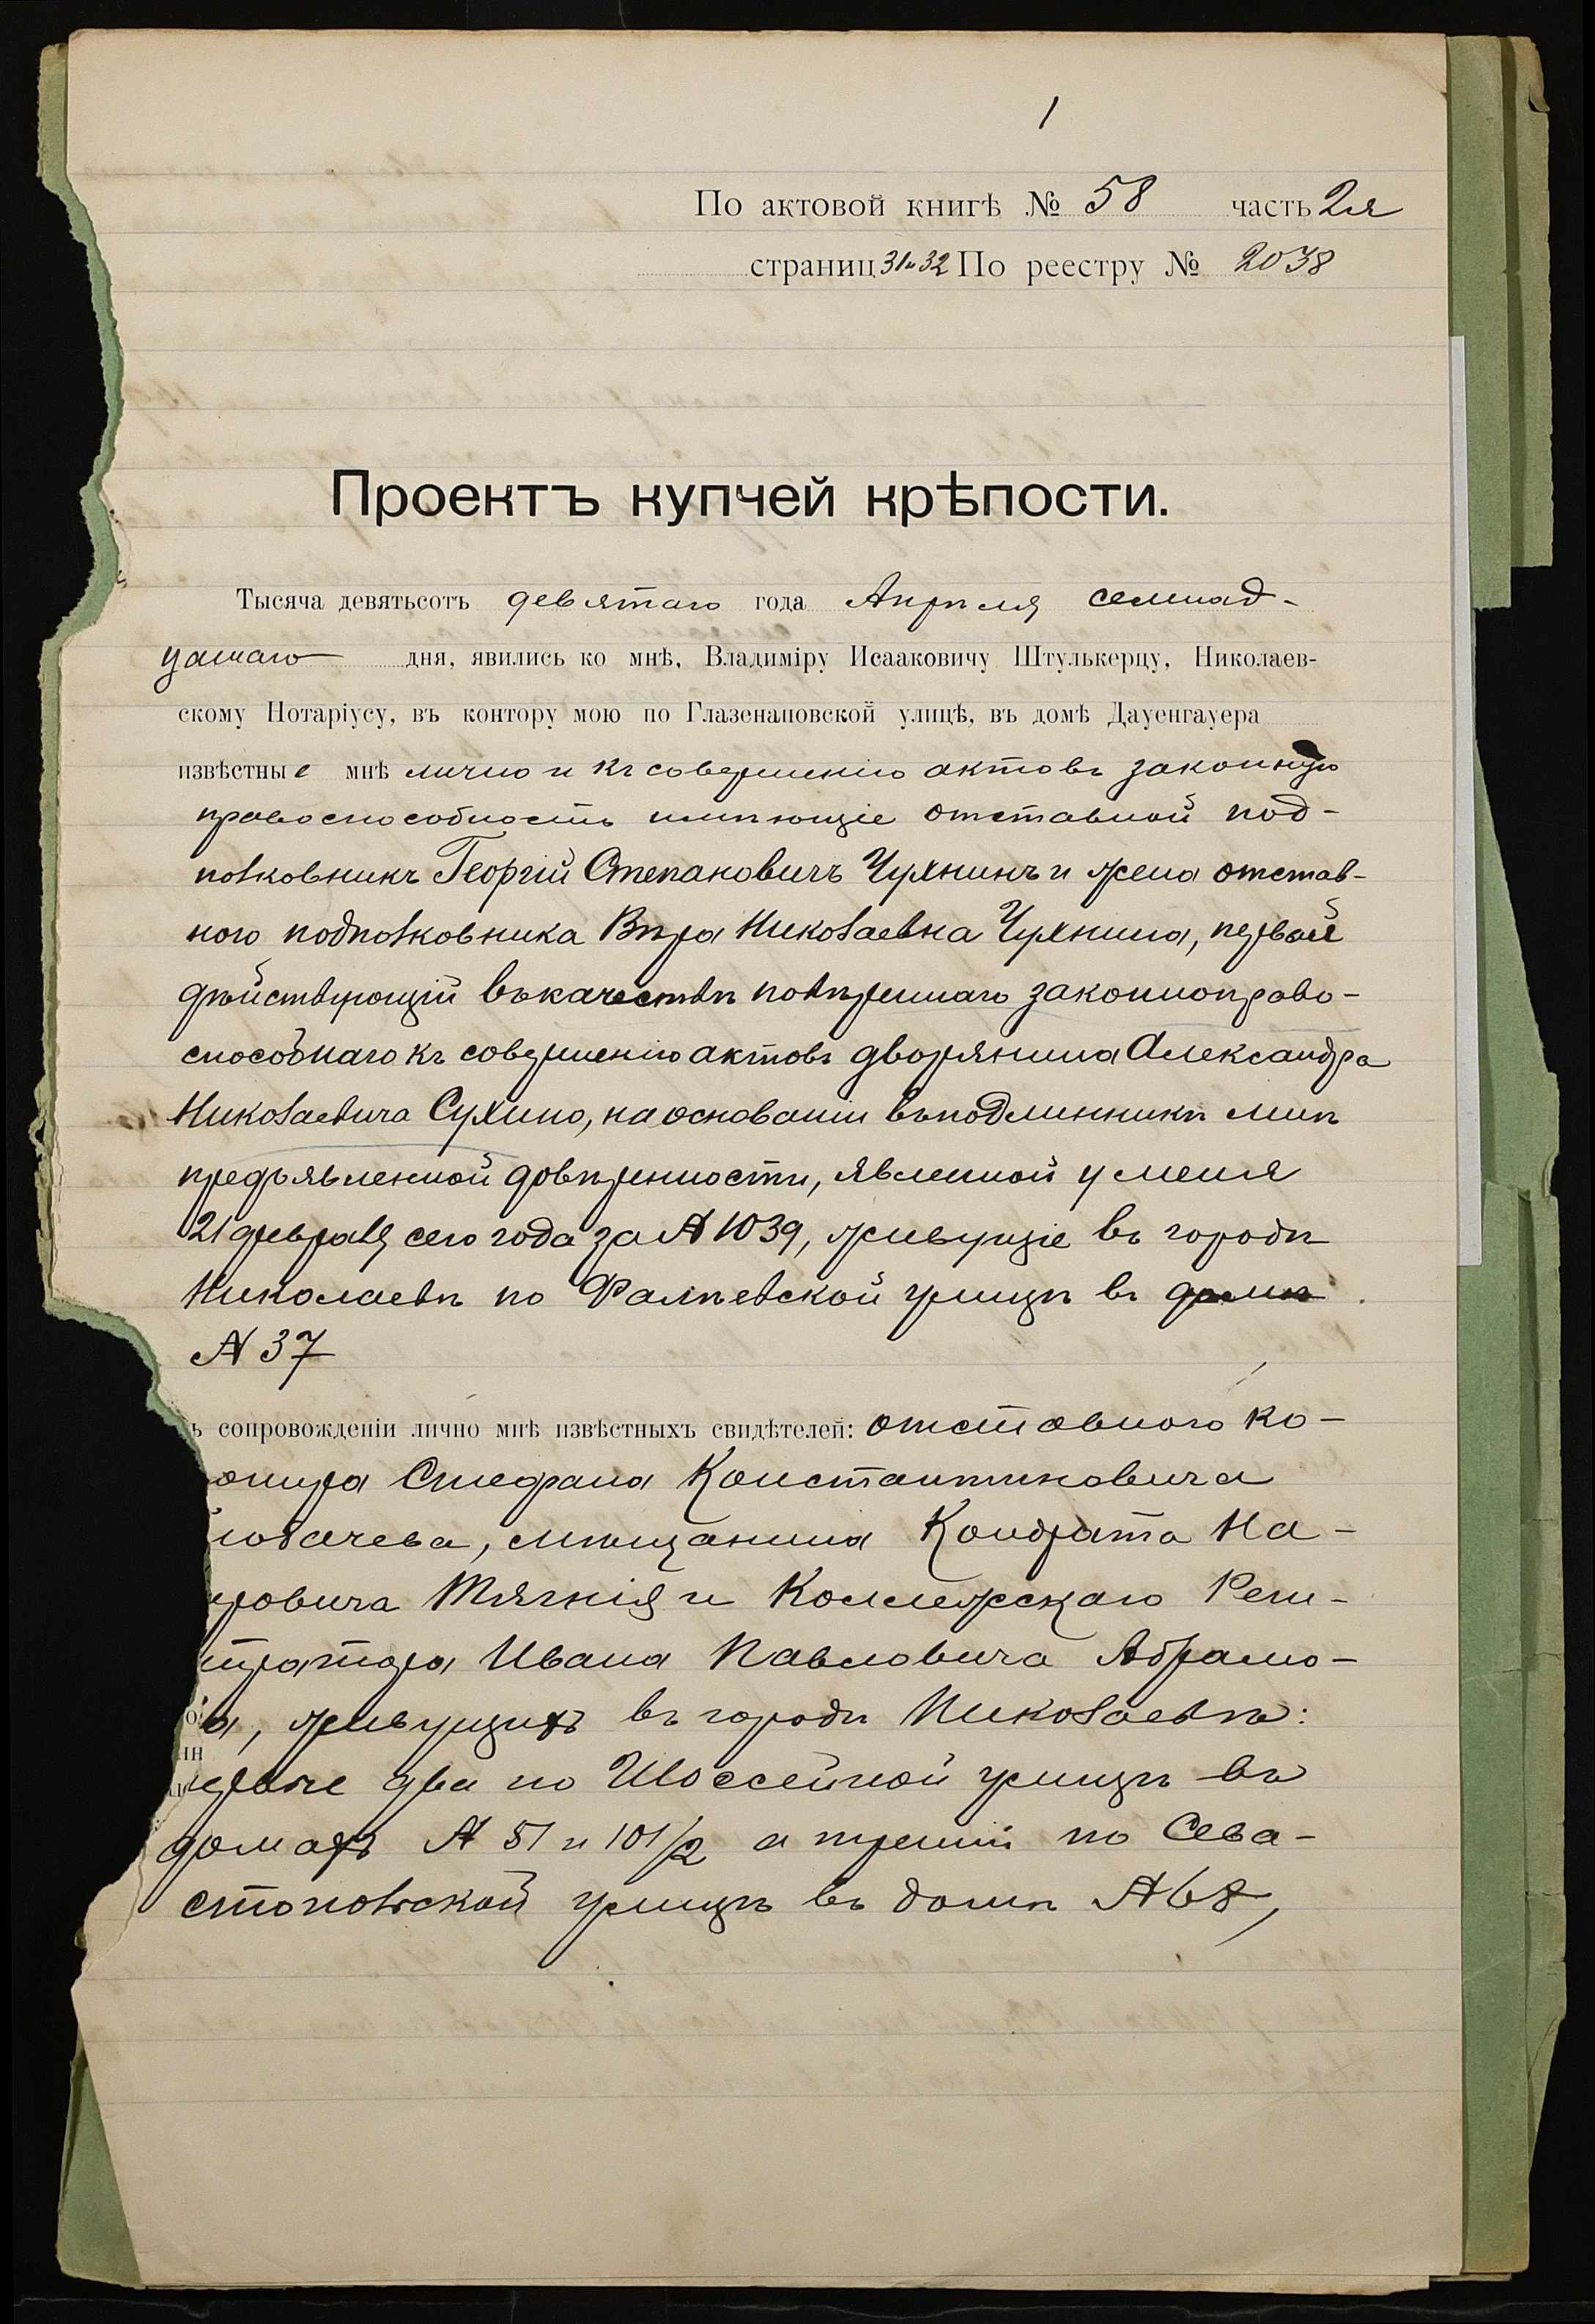 1
По актовой книгѣ № 58 часть 2я
страниц 31и32 По реестру № 2038
Проектъ купчей крѣпости.
Тысяча девятьсотъ девятаго года Апрѣля семнад-
цатаго дня, явились ко мнѣ, Владиміру Исааковичу Штулькерцу, Николаев-
скому Нотаріусу, въ контору мою по Глазенаповской улицѣ, въ домѣ Дауенгауера
извѣстные мнѣ лично и къ совершенію актовъ законную
правоспособность имѣющіе отставной под-
полковникъ Георгій Степановичъ Чухнинъ и жена отстав-
ного подполковника Вѣра Николаевна Чухнина, первый
дѣйствующій въ качествѣ повѣреннаго законноправо-
способнаго къ совершенію актовъ дворянина Александра
Николаевича Сухино, на основаніи въ подлинникѣ мнѣ
предъявленной довѣренности, явленной у меня
21 февраля сего года за № 1039, живущіе въ городѣ
Николаевѣ по Фалѣевской улицѣ въ домѣ
№ 37
ъ сопровожденіи лично мнѣ извѣстныхъ свидѣтелей: отставного ко-
Стефана Константиновича
мѣщанина Кондрата На-
ровича Тягнія и Коллежскаго Реги-
стратора Ивана Павловича Абрамо-
а, живущихъ въ городѣ Николаевѣ:
первые два по Шоссейной улицѣ въ
домахъ № 51 и 101/2 а третій по Сева-
стопольской улицѣ въ домѣ № 68,